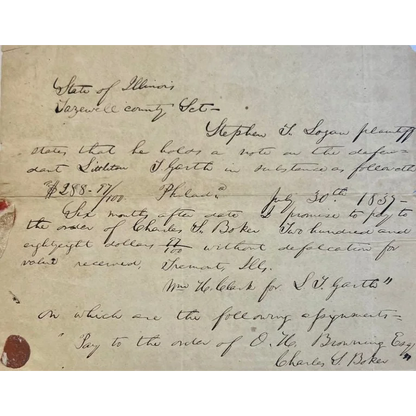 State of Illinois
Tazewell county Sct-
Stephen T. Logan plaintiff
states that he holds a note on the defen-
dant Littleton T Garth in substance as followeth
"$288-77/100 Philada July 30th 1839-
Six months after date I promise to pay to
the order of Charles S. Boker Two hundred and
eightyeight dollars 77/100 without defalcation for
value received Tremont, Ills.
Wm H. Clark for L T. Garth"
on which are the following assignments=
"Pay to the order of O. H. Browning Esq
Charles S. Boker"